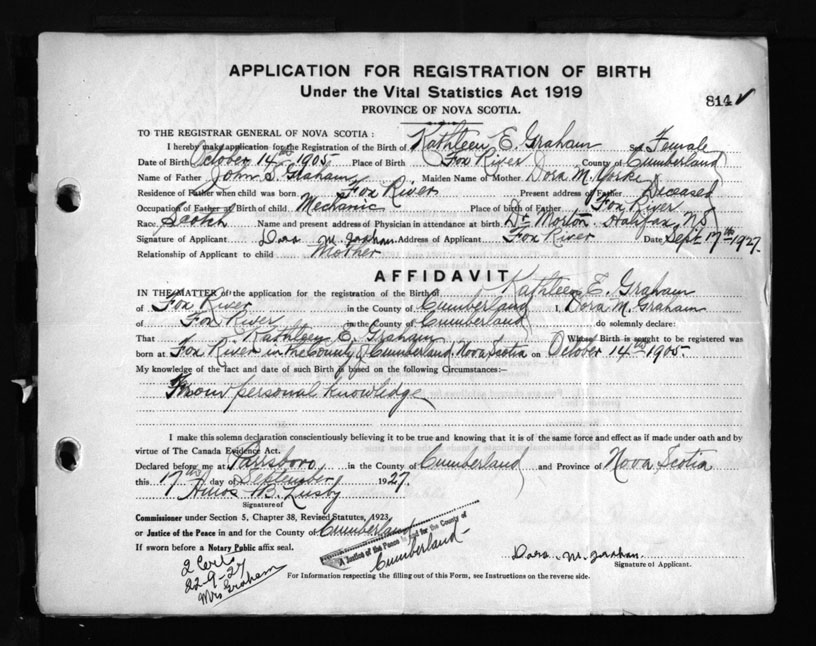 APPLICATION FOR REGISTRATION OF BIRTH
Under the Vital Statistics Act 1919
814
PROVINCE OF NOVA SCOTIA.
TO THE REGISTRAR GENERAL OF NOVA SCOTIA:
I hereby make application for the Registration of the Birth of Kathleen E. Graham Female
Date of Birth October 14th 1905. Place of Birth Fox River County of Cumberland
Name of Father John S. Graham Maiden Name of Mother Dora M. Yorke
Residence of Father when child was born Fox River Present address of Father Deceased
Occupation of Father at Birth of child Mechanic Place of birth of Father Fox River
Race Scotch Name and present address of Physician in attendance at birth Dr Morton Halifax, N.S.
Signature of Applicant Dora M. Graham Address of Applicant Fox River Date Sept 17th 1927.
Relationship of Applicant to child Mother
AFFIDAVIT
IN THE MATTER of the application for the registration of the Birth of Kathleen E. Graham
of Fox River in the County of Cumberland I, Dora M. Graham
of Fox River in the County of Cumberland do solemnly declare:
That Kathleen E. Graham Whose Birth is sought to be registered was
born at Fox River in the County of Cumberland, Nova Scotia on October 14th 1905.
My knowledge of the fact and date of such Birth is based on the following Circumstances:—
From personal knowledge
I make this solemn declaration conscientiously believing it to be true and knowing that it is of the same force and effect as if made under oath and by
virtue of The Canada Evidence Act.
Declared before me at Parrsboro in the County of Cumberland and Province of Nova Scotia
this 17th day of September 1927.
Amos B. Lusby
Signature of
Commissioner under Section 5, Chapter 38, Revised Statutes, 1923
or Justice of the Peace in and for the County of Cumberland
A Justice of the Peace in and for the County of
Cumberland
If sworn before a Notary Public affix seal.
Dora M. Graham
Signature of Applicant.
2 Certs
22-9-27
Mrs Graham
For Information respecting the filling out of this Form, see Instructions on the reverse side.